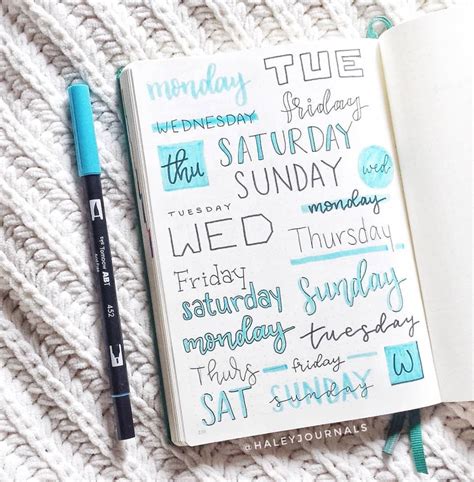 monday TUE
WEDNESDAY friday
thu SATURDAY
SUNDAY wed
TUESDAY monday
WED Thursday
Friday
saturday Sunday
monday tuesday
Thurs friday W
SAT SUNDAY
@HALEYJOURNALS
Tombow ABT
452